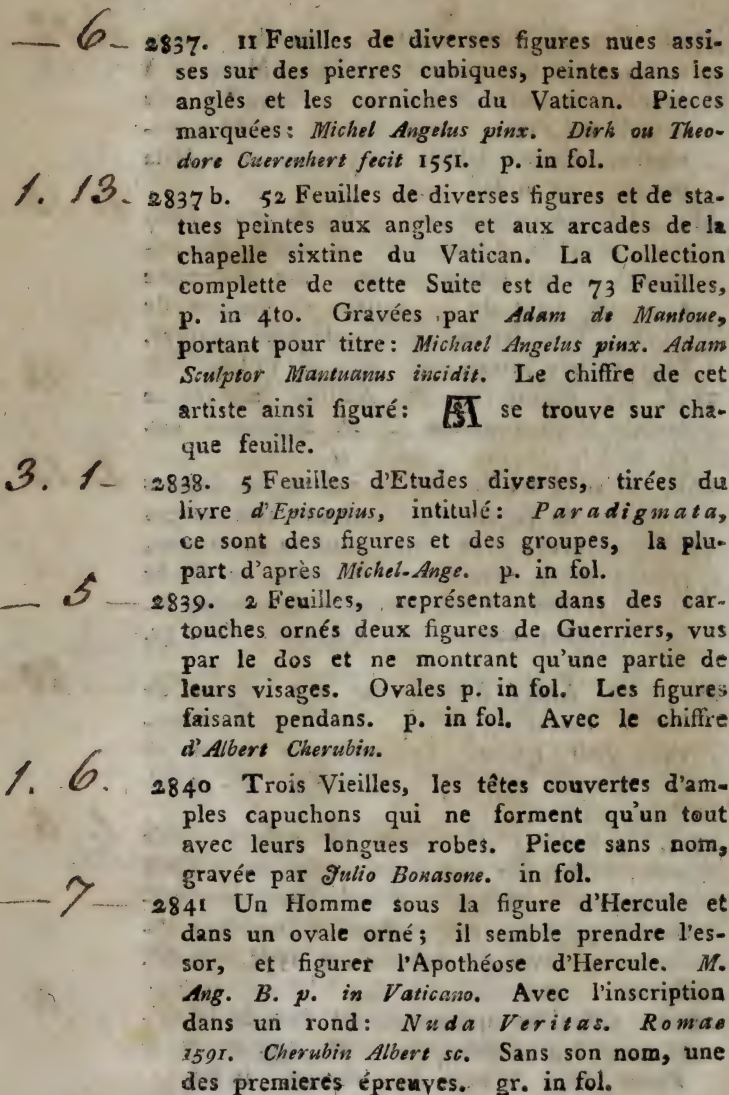 — 6 — 2837. 11 Feuilles de diverses figures nues assi-
ses sur des pierres cubiques, peintes dans les
anglés et les corniches du Vatican. Pieces
marquées: Michel Angelus pinx. Dirk ou Theo-
dore Cuerenhert fecit 1551. p. in fol.
1. 13. 2837 b. 52 Feuilles de diverses figures et de sta-
tues peintes aux angles et aux arcades de la
chapelle sixtine du Vatican. La Collection
complette de cette Suite est de 73 Feuilles,
p. in 4to. Gravées par Adam de Mantoue,
portant pour titre: Michael Angelus pinx. Adam
Sculptor Mantuanus incidit. Le chiffre de cet
artiste ainsi figuré: se trouve sur cha-
que feuille.
3. 1 — 2838. 5 Feuilles d'Etudes diverses, tirées du
livre d'Episcopius, intitulé: Paradigmata,
ce sont des figures et des groupes, la plu-
part d'après Michel-Ange. p. in fol.
— 5 — 2839. 2 Feuilles, représentant dans des car-
touches ornés deux figures de Guerriers, vus
par le dos et ne montrant qu'une partie de
leurs visages. Ovales p. in fol. Les figures
faisant pendans. p. in fol. Avec le chiffre
d'Albert Cherubin.
1. 6. 2840 Trois Vieilles, les têtes couvertes d'am-
ples capuchons qui ne forment qu'un tout
avec leurs longues robes. Piece sans nom,
gravée par Julio Bonasone. in fol.
— 7 — 2841 Un Homme sous la figure d'Hercule et
dans un ovale orné; il semble prendre l'es-
sor, et figurer l'Apothéose d'Hercule. M.
Ang. B. p. in Vaticano. Avec l'inscription
dans un rond: Nuda Veritas. Romae
1591. Cherubin Albert sc. Sans son nom, une
des premieres épreuves. gr. in fol.